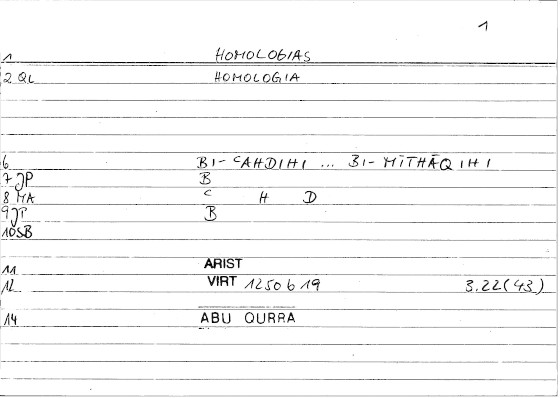 1
1 HOMOLOGIAS
2 QL HOMOLOGIA
6 BI-ʿAHDIHI ... BI-MĪTHĀQIHI
7 JP B
8 MA ʿ H D
9 JP B
10 SB
11 ARIST
12 VIRT 1250 b 19 3.22(43)
14 ABU QURRA